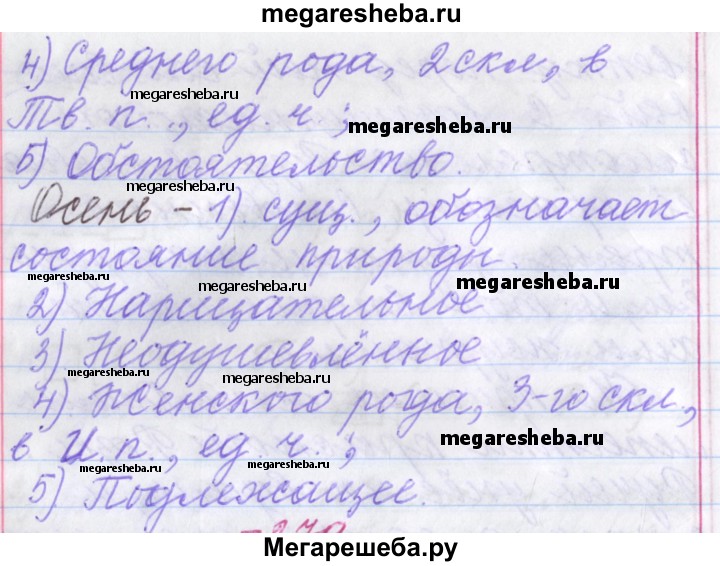 megaresheba.ru
4) Среднего рода, 2 скл, в
megaresheba.ru
Тв. п., ед. ч.;
megaresheba.ru
5) Обстоятельство.
megaresheba.ru
Осень - 1) сущ., обозначает
megaresheba.ru
состояние природы.
megaresheba.ru
megaresheba.ru
megaresheba.ru
2) Нарицательное
megaresheba.ru
3) Неодушевлённое
megaresheba.ru
megaresheba.ru
4) Женского рода, 3-го скл,
megaresheba.ru
в И.п., ед. ч.;
megaresheba.ru
megaresheba.ru
5) Подлежащее.
Мегарешеба.ру